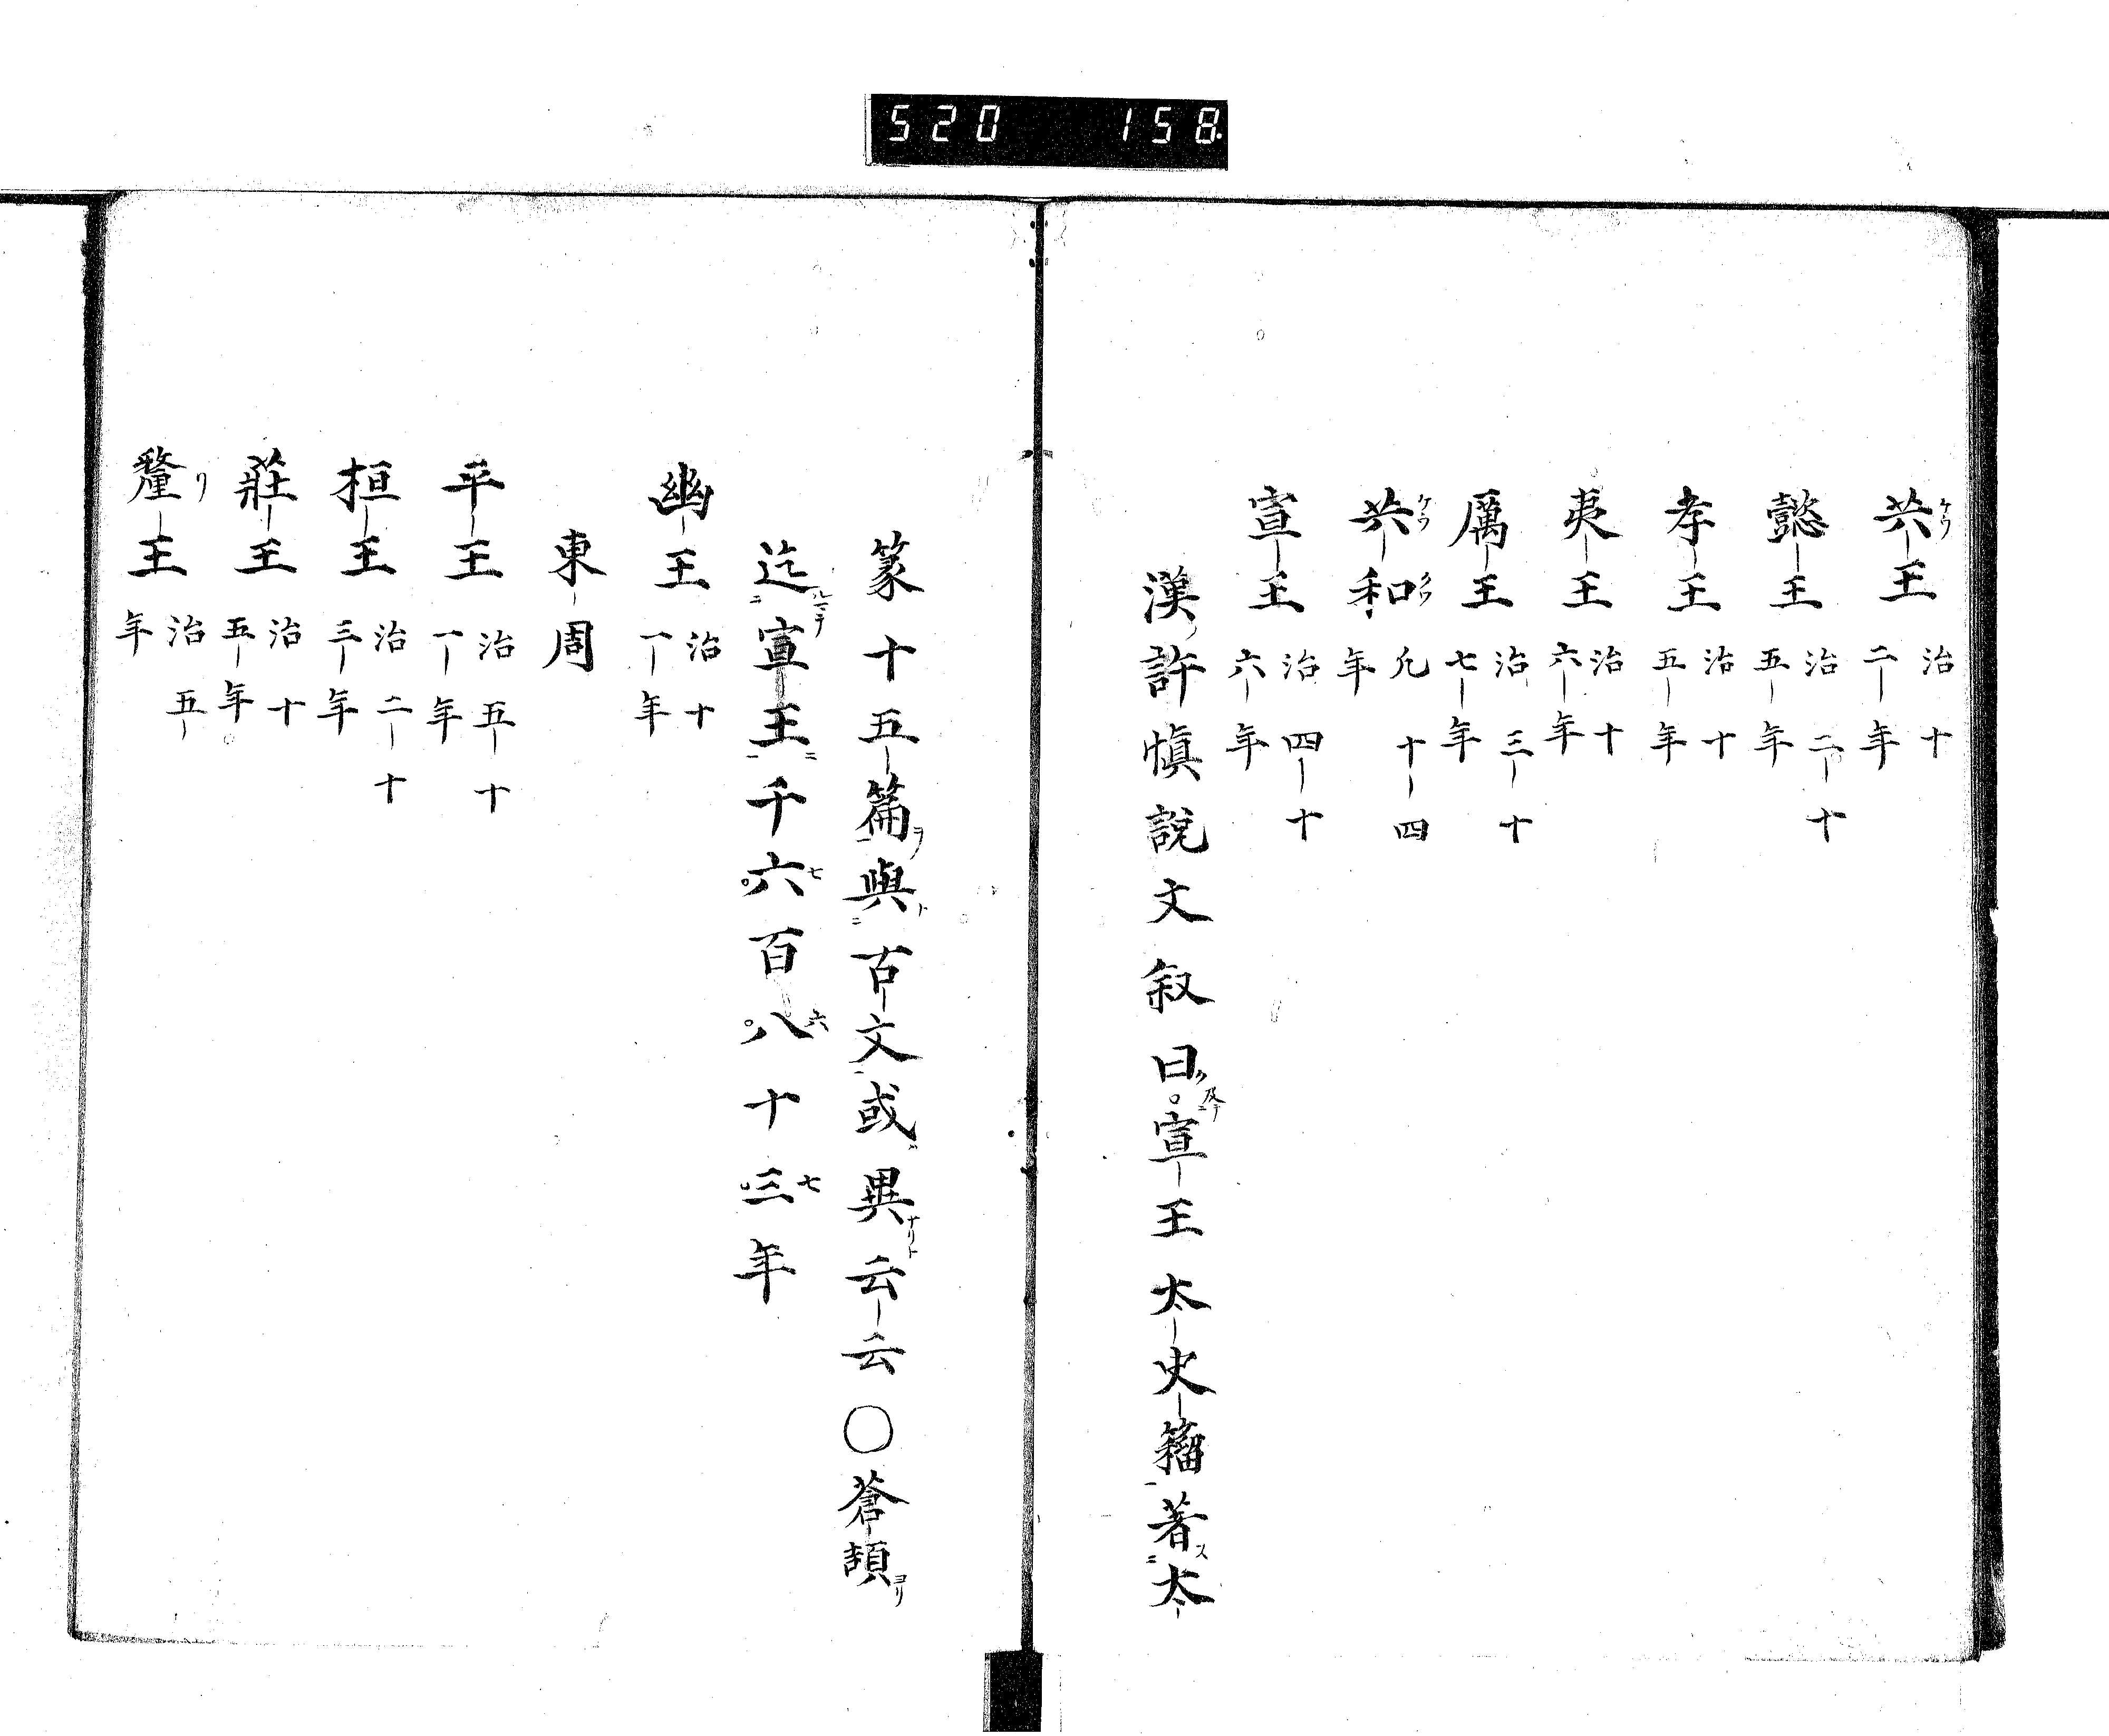 520 158
共王 治十二年
懿王 治二十五年
孝王 治十五年
夷王 治十六年
厲王 治三十七年
共和 凡十四年
宣王 治四十六年
漢許愼說文叙曰宣王太史籀著太
篆十五篇與古文或異云云○蒼頡
迄宣王千六百八十三年
幽王 治十一年
東周
平王 治五十一年
桓王 治二十三年
莊王 治十五年
釐王 治五年